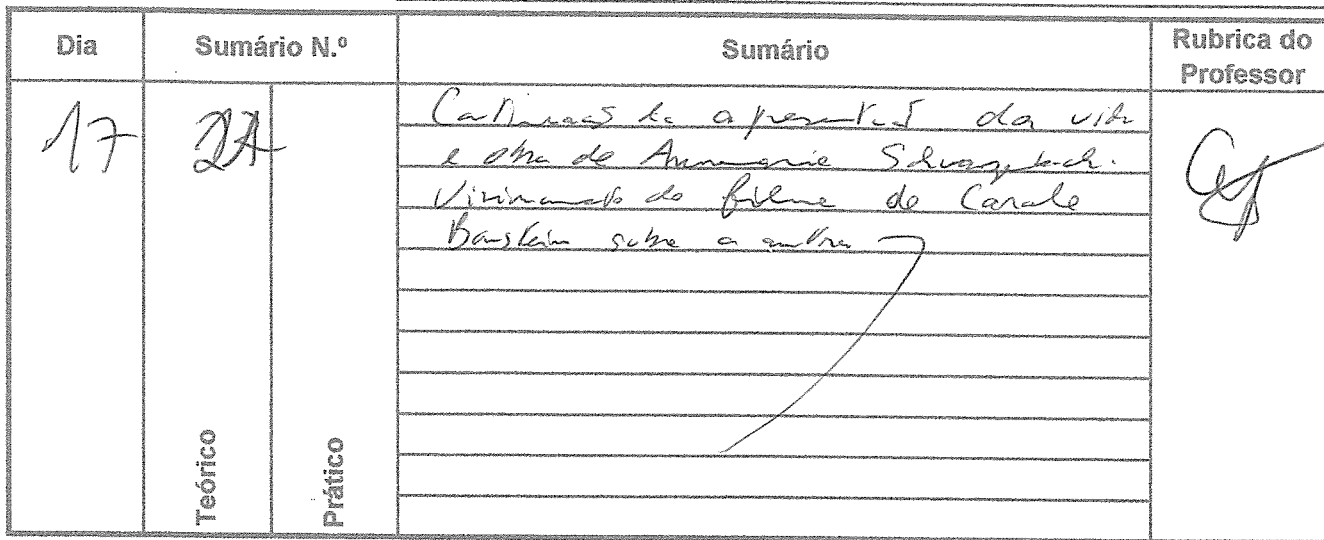 Dia
Sumário N.º
Sumário
Rubrica do
Professor
17
Continuação da apresentação da vida
e obra de Annemarie Schwarzenbach.
Visionamento do filme de Carole
Bonstein sobre a autora
Teórico
Prático